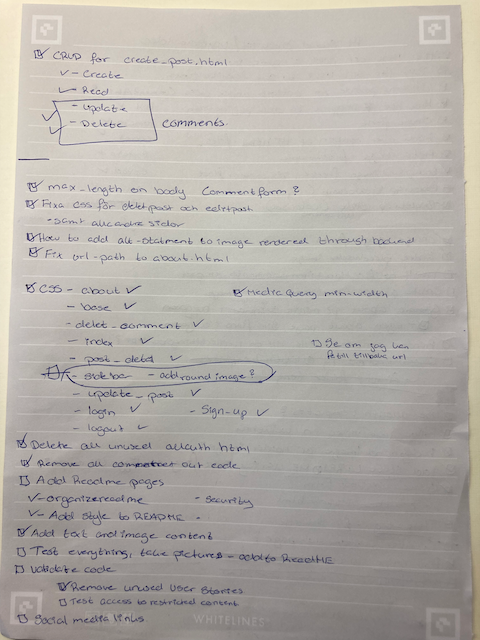 CRUD for create_post.html
- Create
- Read
- Update
- Delete
comments
max_length on body Commentform?
Fixa css för deletpost och editpost
- samt alla andra sidor
How to add alt-statment to image rendered through backend
Fix url-path to about.html
CSS - about
Media Query min-width
- base
- delet_comment
- index
Se om jag kan
få till tillbaka url
- post_detail
- sidebar - add round image?
- update_post
- login
- Sign-up
- logout
Delete all unused allauth html
Remove all out code
Add Readme pages
- organize readme
- security
- Add style to README
Add text and image content
Test everything, take pictures - add to ReadME
Validate code
Remove unused User Stories
Test access to restricted content
Social media links
WHITELINES